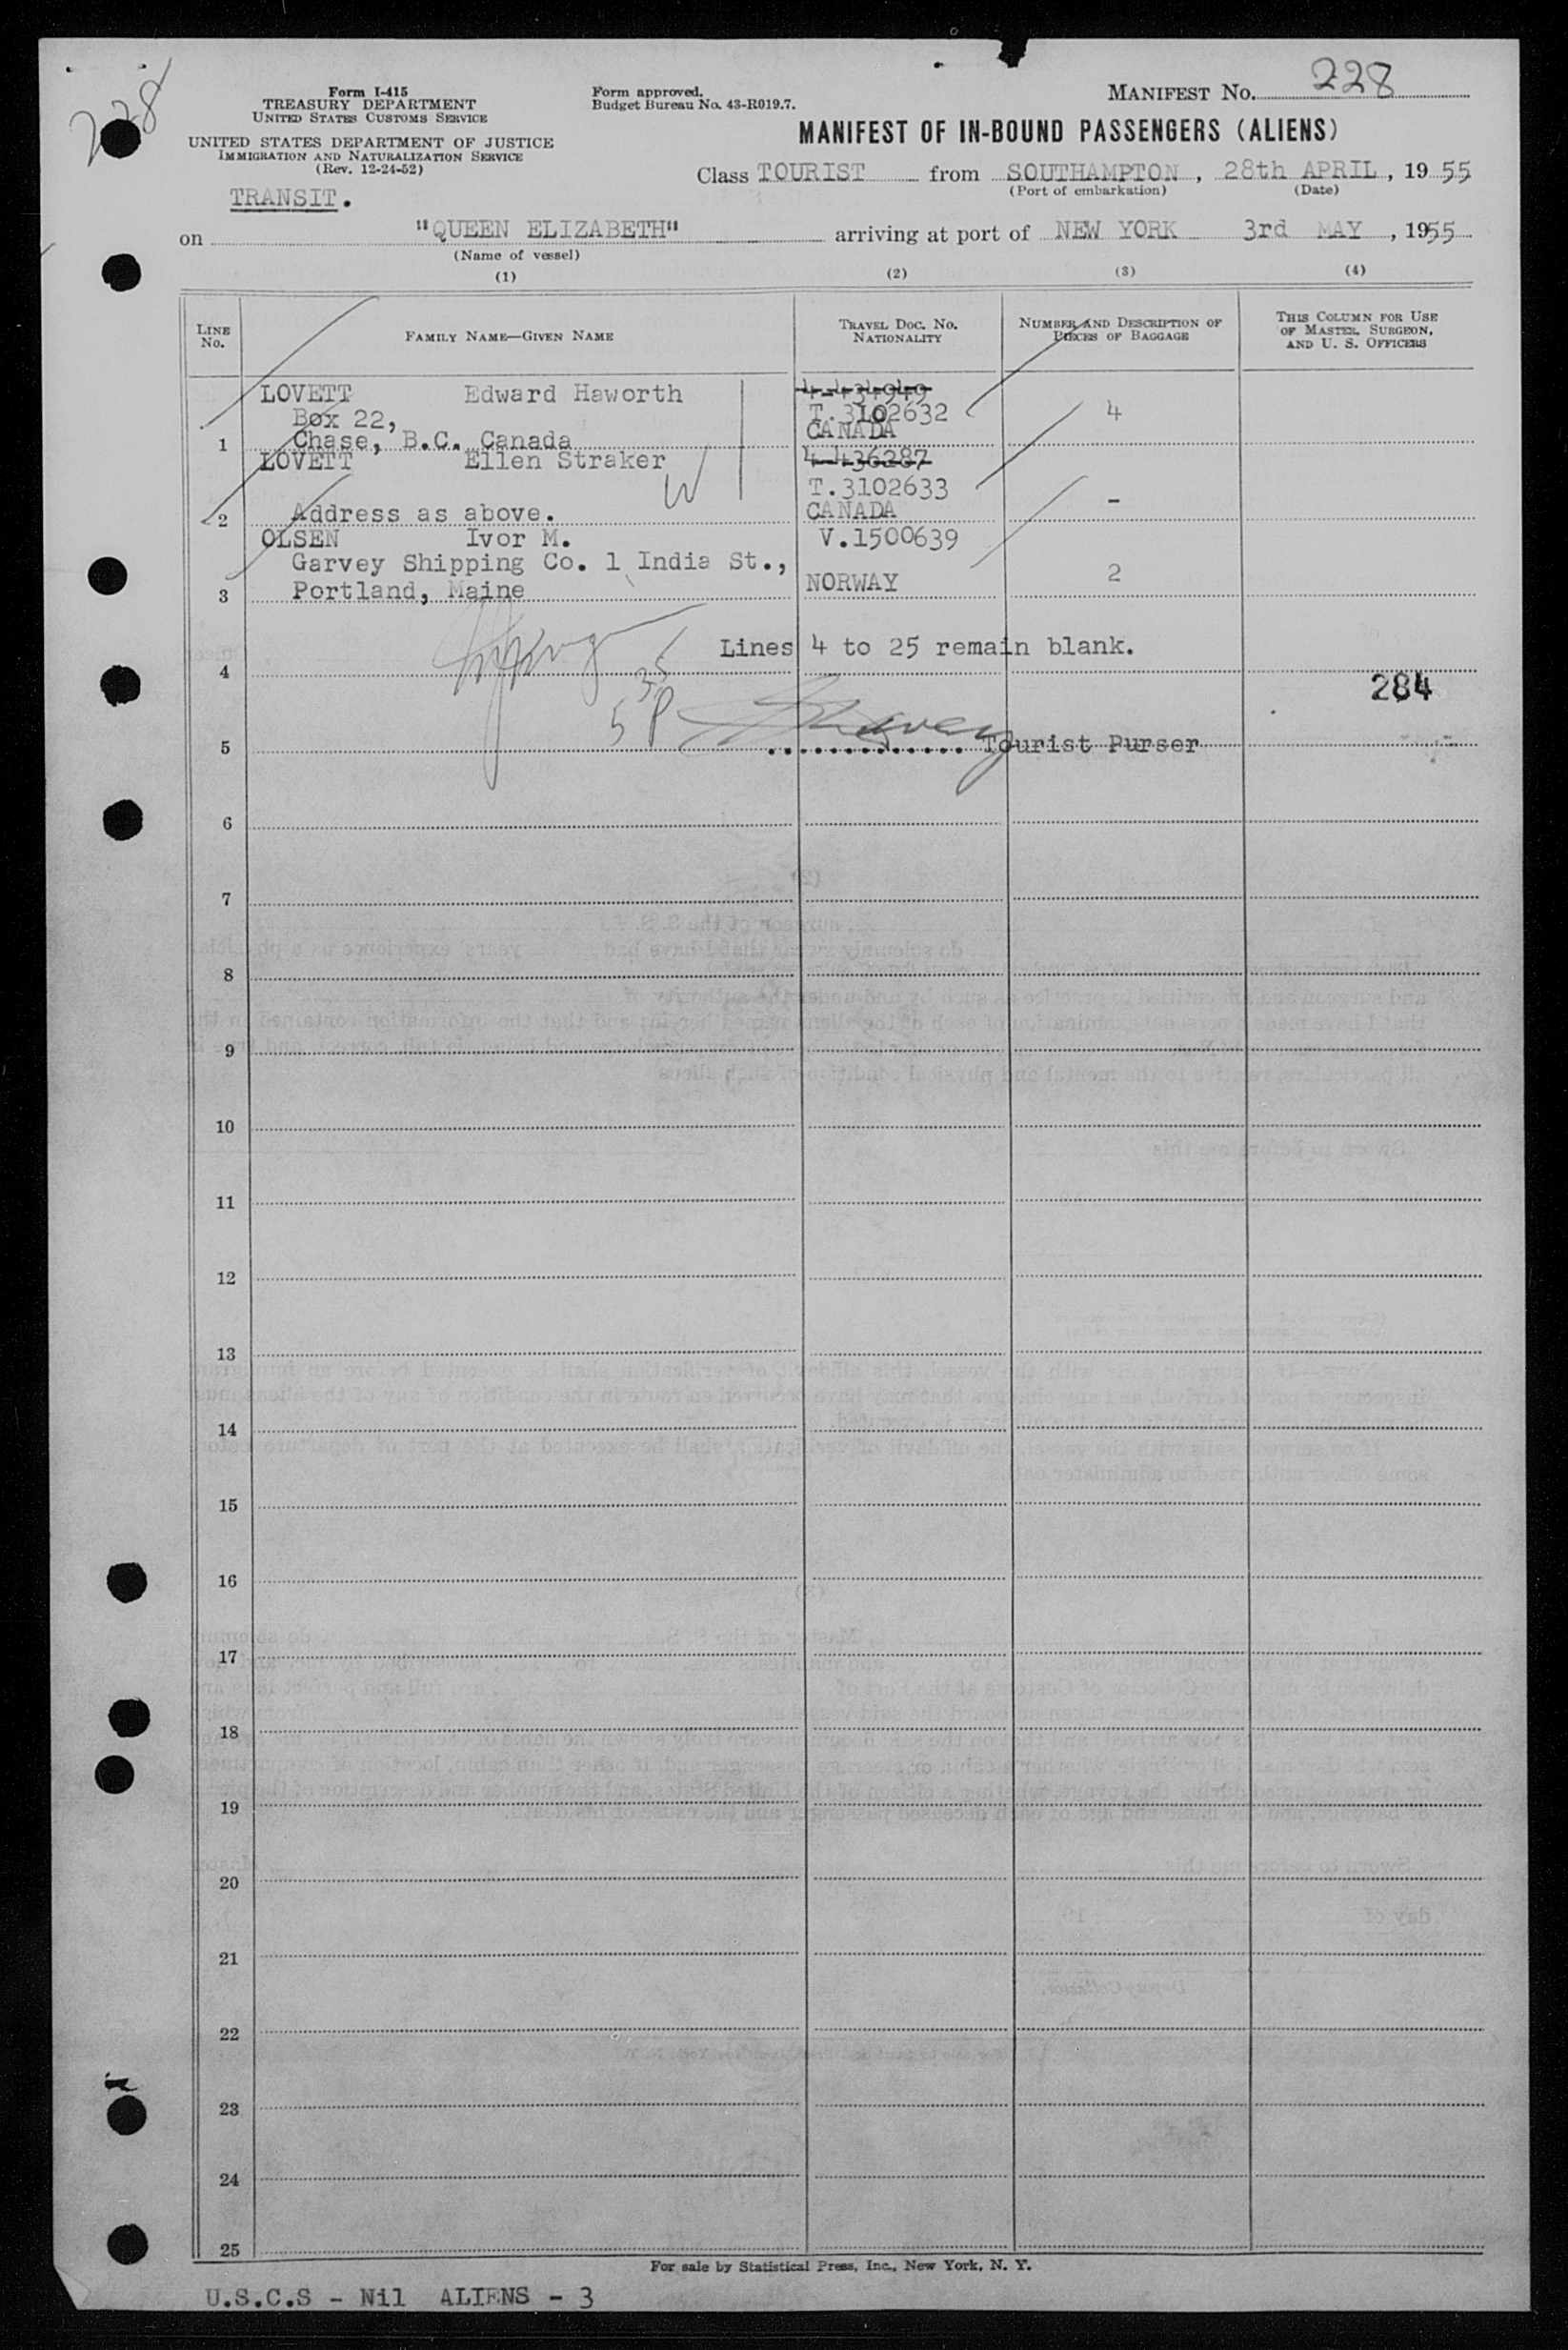 228
Form I-415
TREASURY DEPARTMENT
UNITED STATES CUSTOMS SERVICE
UNITED STATES DEPARTMENT OF JUSTICE
IMMIGRATION AND NATURALIZATION SERVICE
(Rev. 12-24-52)
TRANSIT.
Form approved.
Budget Bureau No. 43-R019.7.
MANIFEST NO. 228
MANIFEST OF IN-BOUND PASSENGERS (ALIENS)
Class TOURIST from SOUTHAMPTON, 28th APRIL, 1955
(Port of embarkation) (Date)
on "QUEEN ELIZABETH" arriving at port of NEW YORK 3rd MAY, 1955
(Name of vessel)
(1) (2) (3) (4)
LINE No. FAMILY NAME—GIVEN NAME TRAVEL DOC. NO. NATIONALITY NUMBER AND DESCRIPTION OF PIECES OF BAGGAGE THIS COLUMN FOR USE OF MASTER, SURGEON, AND U. S. OFFICERS
LOVETT Edward Haworth 4-434949
Box 22, T.3102632 4
1 Chase, B.C. Canada CANADA
LOVETT Ellen Straker 4-436287
W T.3102633
2 Address as above. CANADA -
OLSEN Ivor M. V.1500639
Garvey Shipping Co. 1 India St.,
3 Portland, Maine NORWAY 2
Lines 4 to 25 remain blank.
4
284
5 Tourist Purser
6
7
8
9
10
11
12
13
14
15
16
17
18
19
20
21
22
23
24
25
For sale by Statistical Press, Inc., New York, N. Y.
U.S.C.S - Nil ALIENS - 3